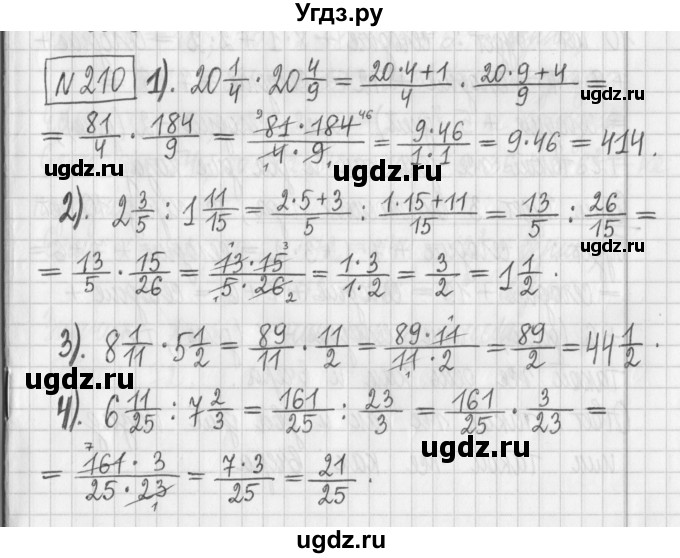 Угдз.ру
N 210 1). 20 1/4 · 20 4/9 = (20·4+1)/4 · (20·9+4)/9 =
ugdz.ru
= 81/4 · 184/9 = (⁹81 · 184⁴⁶)/(₁4 · 9₁) = (9·46)/(1·1) = 9·46 = 414.
ugdz.ru ugdz.ru
2). 2 3/5 : 1 11/15 = (2·5+3)/5 : (1·15+11)/15 = 13/5 : 26/15 =
ugdz.ru
= 13/5 · 15/26 = (¹13 · 15³)/(₁5 · 26₂) = (1·3)/(1·2) = 3/2 = 1 1/2 .
3). 8 1/11 · 5 1/2 = 89/11 · 11/2 = (89 · 11¹)/(₁11 · 2) = 89/2 = 44 1/2 .
ugdz.ru
4). 6 11/25 : 7 2/3 = 161/25 : 23/3 = 161/25 · 3/23 =
ugdz.ru
= (⁷161 · 3)/(25 · 23₁) = (7·3)/25 = 21/25 .
ugdz.ru
ugdz.ru